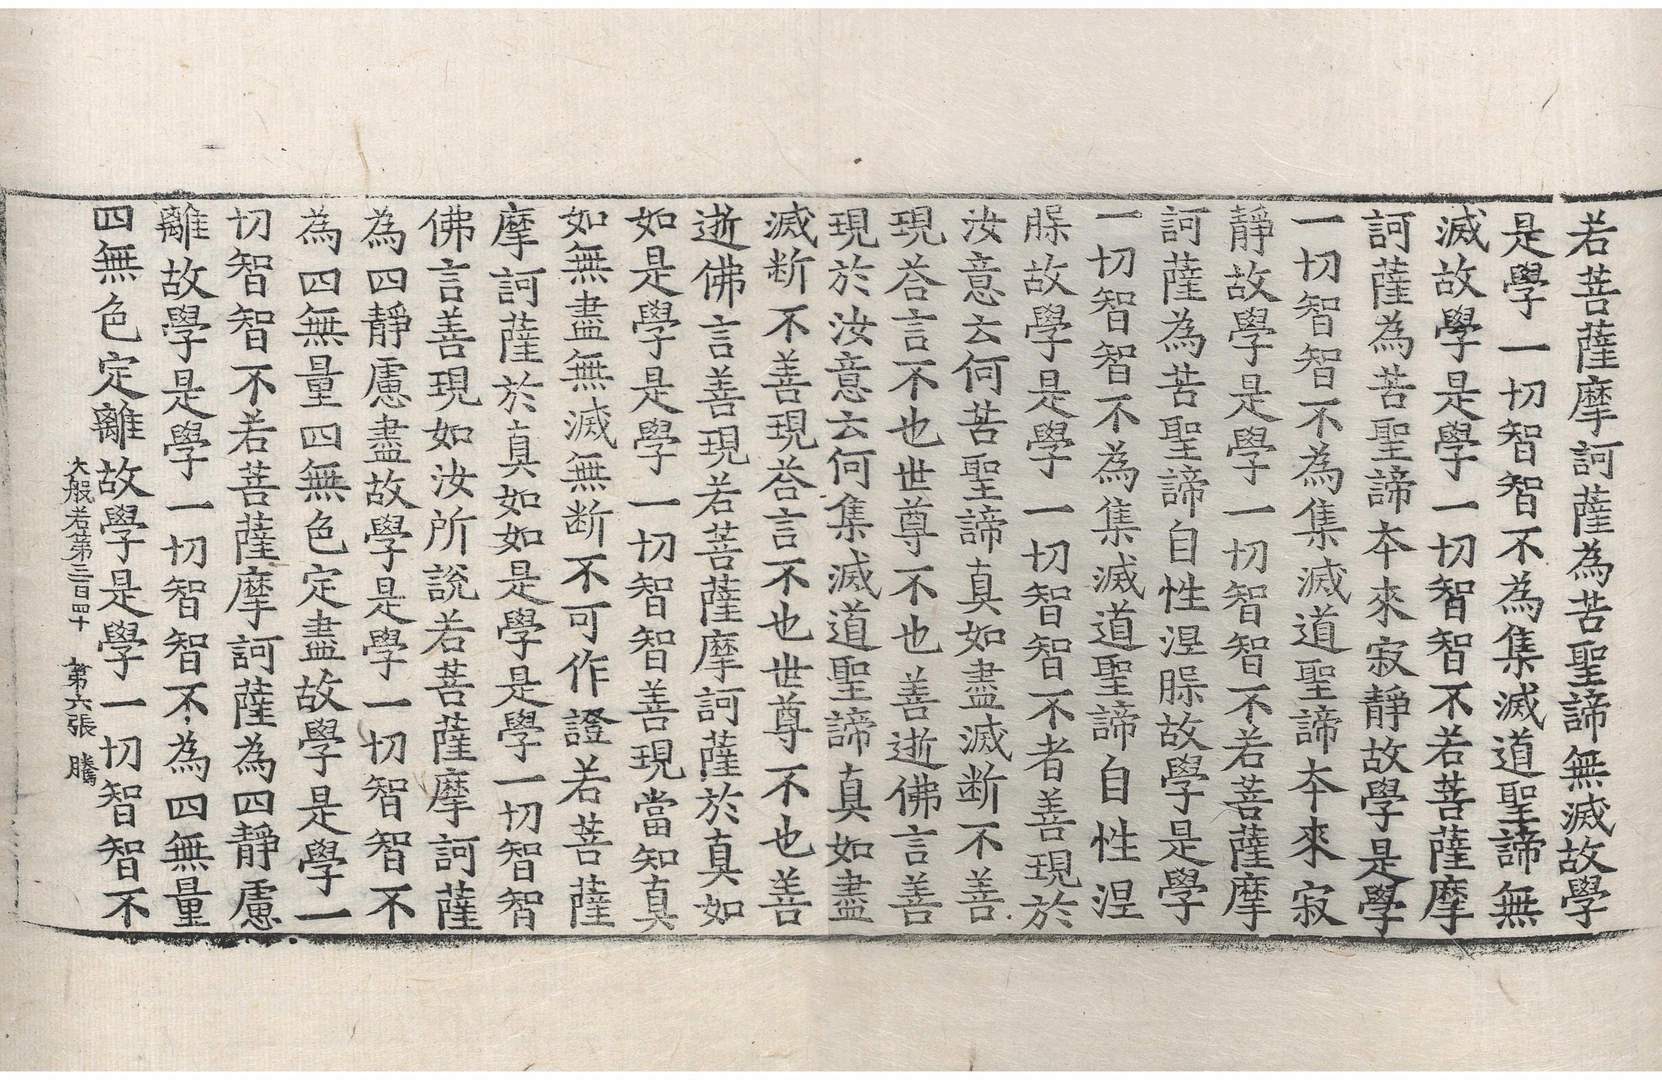 若菩薩摩訶薩為苦聖諦無滅故學
是學一切智智不為集滅道聖諦無
滅故學是學一切智智不若菩薩摩
訶薩為苦聖諦夲來寂靜故學是學
一切智智不為集滅道聖諦夲來寂
靜故學是學一切智智不若菩薩摩
訶薩為苦聖諦自性涅槃故學是學
一切智智不為集滅道聖諦自性涅
槃故學是學一切智智不者善現於
汝意云何苦聖諦真如盡滅断不善
現荅言不也世尊不也善逝佛言善
現於汝意云何集滅道聖諦真如盡
滅断不善現荅言不也世尊不也善
逝佛言善現若菩薩摩訶薩於真如
如是學是學一切智智善現當知真
如無盡無滅無断不可作證若菩薩
摩訶薩於真如如是學是學一切智智
佛言善現如汝所說若菩薩摩訶薩
為四靜慮盡故學是學一切智智不
為四無量四無色定盡故學是學一
切智智不若菩薩摩訶薩為四靜慮
離故學是學一切智智不為四無量
四無色定離故學是學一切智智不
大般若第三百四十 第六張 騰